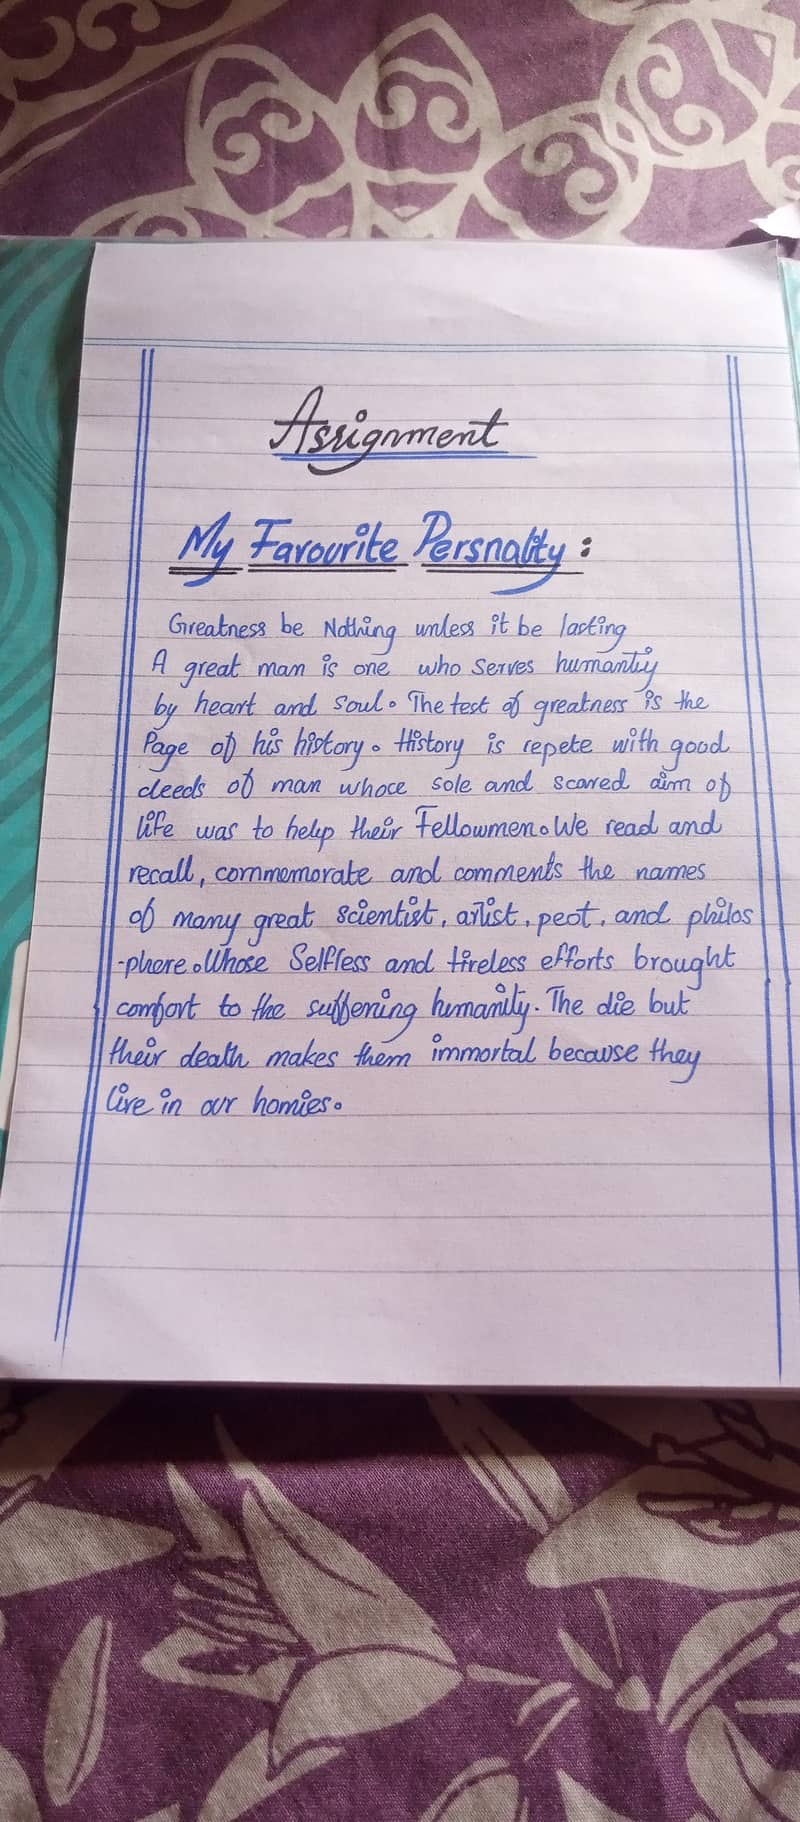 Assignment
My Favourite Persnality:
Greatness be Nothing unless it be lasting
A great man is one who serves humantiy
by heart and soul. The test of greatness is the
Page of his history. History is repete with good
deeds of man whoce sole and scared aim of
life was to help their Fellowmen. We read and
recall, commemorate and comments the names
of many great scientist, artist, peot, and philos
-phere. Whose Selfless and tireless efforts brought
comfort to the suffening humanity. The die but
their death makes them immortal because they
live in our homies.